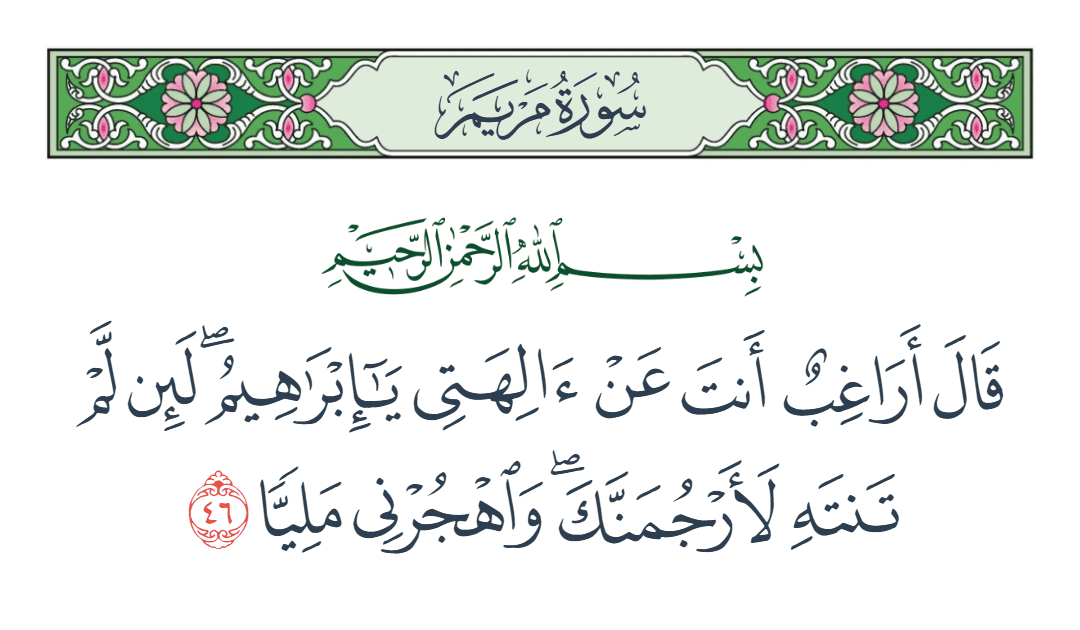 سُورَةُ مَرْيَمَ
بِسْمِ ٱللَّهِ ٱلرَّحْمَٰنِ ٱلرَّحِيمِ
قَالَ أَرَاغِبٌ أَنتَ عَنْ ءَالِهَتِى يَـٰٓإِبْرَٰهِيمُ ۖ لَئِن لَّمْ
تَنتَهِ لَأَرْجُمَنَّكَ ۖ وَٱهْجُرْنِى مَلِيًّا ٤٦